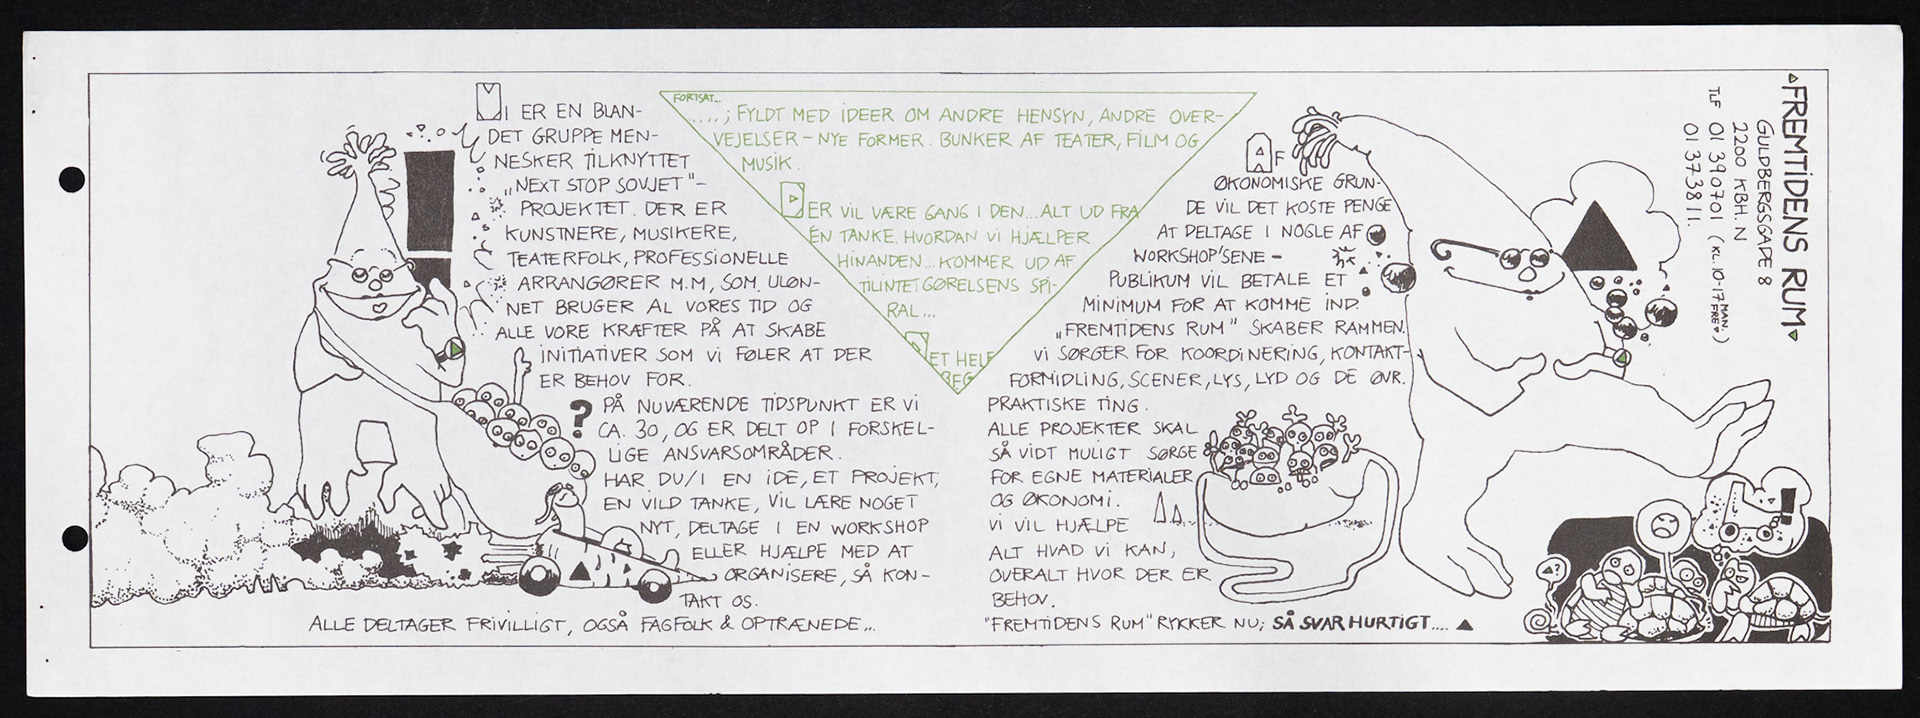 VI ER EN BLAN-
DET GRUPPE MEN-
NESKER TILKNYTTET
„NEXT STOP SOVJET"-
PROJEKTET. DER ER
KUNSTNERE, MUSIKERE,
TEATERFOLK, PROFESSIONELLE
ARRANGØRER M.M, SOM, ULØN-
NET BRUGER AL VORES TID OG
ALLE VORE KRÆFTER PÅ AT SKABE
INITIATIVER SOM VI FØLER AT DER
ER BEHOV FOR.
? PÅ NUVÆRENDE TIDSPUNKT ER VI
CA. 30, OG ER DELT OP I FORSKEL-
LIGE ANSVARSOMRÅDER.
HAR DU/I EN IDE, ET PROJEKT,
EN VILD TANKE, VIL LÆRE NOGET
NYT, DELTAGE I EN WORKSHOP
ELLER HJÆLPE MED AT
ORGANISERE, SÅ KON-
TAKT OS.
ALLE DELTAGER FRIVILLIGT, OGSÅ FAGFOLK & OPTRÆNEDE...
FORTSAT...
....; FYLDT MED IDEER OM ANDRE HENSYN, ANDRE OVER-
VEJELSER - NYE FORMER. BUNKER AF TEATER, FILM OG
MUSIK.
DER VIL VÆRE GANG I DEN... ALT UD FRA
ÉN TANKE. HVORDAN VI HJÆLPER
HINANDEN... KOMMER UD AF
TILINTETGØRELSENS SPI-
RAL...
DET HELE
BEG
AF
ØKONOMISKE GRUN-
DE VIL DET KOSTE PENGE
AT DELTAGE I NOGLE AF
WORKSHOP'SENE -
PUBLIKUM VIL BETALE ET
MINIMUM FOR AT KOMME IND.
„FREMTIDENS RUM" SKABER RAMMEN.
VI SØRGER FOR KOORDINERING, KONTAKT-
FORMIDLING, SCENER, LYS, LYD OG DE ØVR.
PRAKTISKE TING.
ALLE PROJEKTER SKAL
SÅ VIDT MULIGT SØRGE
FOR EGNE MATERIALER
OG ØKONOMI.
VI VIL HJÆLPE
ALT HVAD VI KAN,
OVERALT HVOR DER ER
BEHOV.
"FREMTIDENS RUM" RYKKER NU; SÅ SVAR HURTIGT....
FREMTIDENS RUM
GULDBERGSGADE 8
2200 KBH. N
TLF 01 390701 (KL. 10-17 MAN. FRE)
01 373811.
?
!